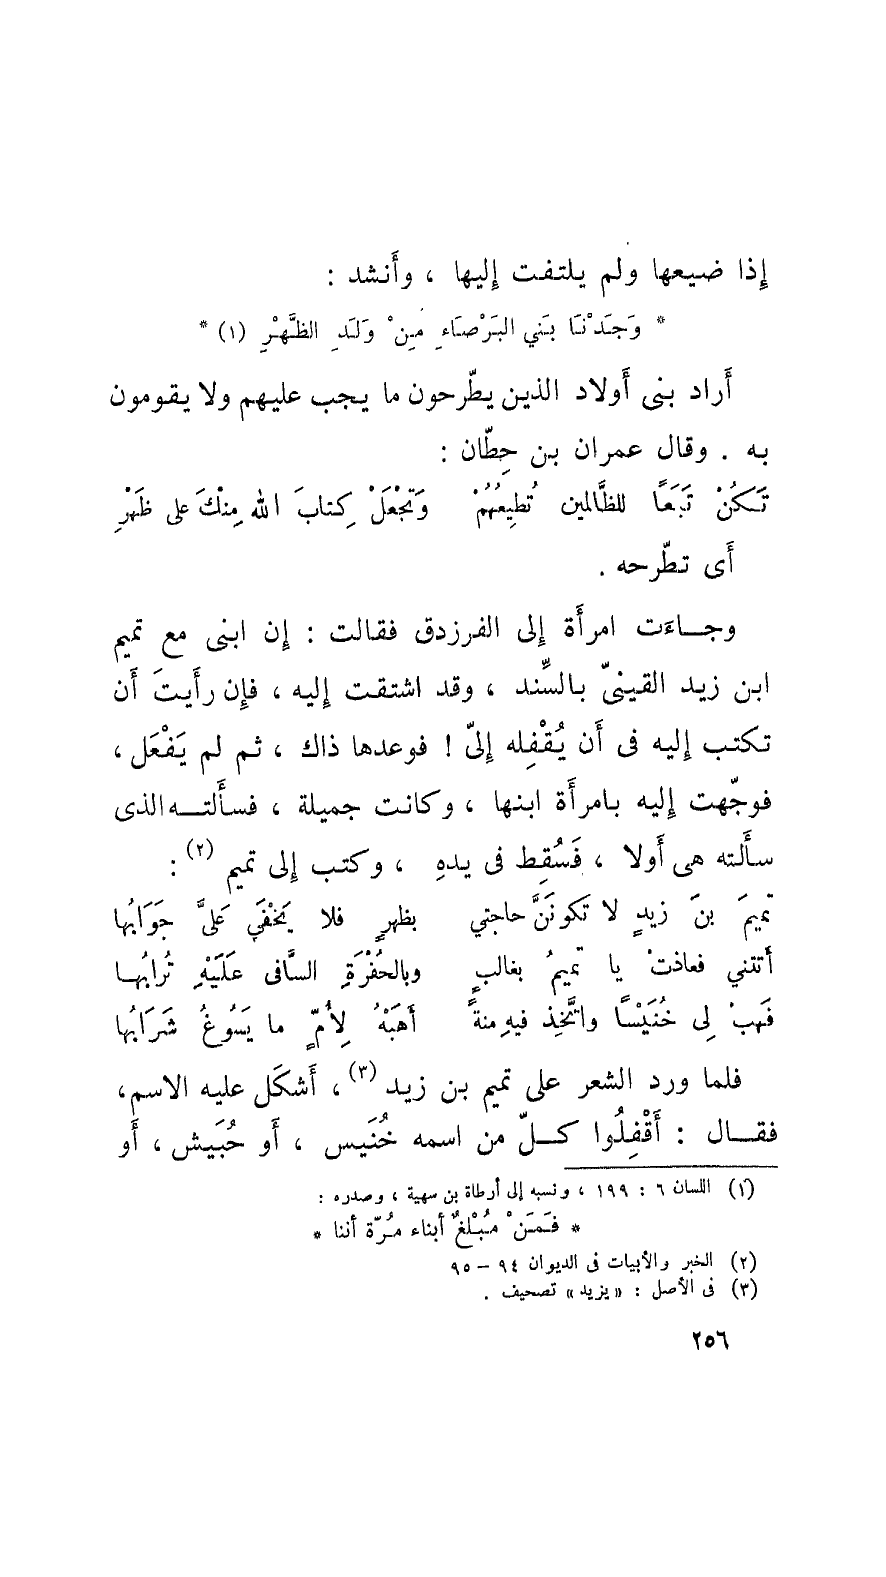 إذا ضيعها ولم يلتفت إليها ، وأنشد :
* وَجَدْنَا بَني البَرْصَاءِ مِنْ وَلَدِ الظَّهْرِ (١) *
أَراد بنى أَولاد الذين يطّرحون ما يجب عليهم ولا يقومون
به . وقال عمران بن حِطّان :
تَكُنْ تَبَعًا للظَّالمين تُطيعُهُمْ وَتَجْعَلْ كِتابَ الله مِنْكَ على ظَهْرِ
أَى تطّرحه .
وجـاءَت امرأَة إلى الفرزدق فقالت : إن ابنى مع تميم
ابن زيد القينىّ بالسِّند ، وقد اشتقت إليه ، فإن رأَيتَ أَن
تكتب إليه فى أَن يُقْفِله إلىّ ! فوعدها ذاك ، ثم لم يَفْعَل ،
فوجّهت إليه بامرأَة ابنها ، وكانت جميلة ، فسأَلتـه الذى
سأَلته هى أَولا ، فَسُقِط فى يدهِ ، وكتب إلى تميم (٢) :
تميمَ بنَ زيدٍ لا تكونَنَّ حاجتي بظهرٍ فلا يَخْفَى عَلىَّ جَوَابُها
أتتني فعاذتْ يا تميمُ بغالبٍ وبالحُفْرَةِ السَّافى عَلَيْهِ تُرابُهـا
فَهبْ لِى خُنَيْسًا واتَّخِذ فيهِ منةً أهَبْهُ لِأُمّ‍ٍ ما يَسُوغُ شَرَابُها
فلما ورد الشعر على تميم بن زيد (٣) ، أَشكَل عليه الاسم،
فقـال : أَقْفِلُوا كـلّ من اسمه خُنَيس ، أَو حُبَيش ، أَو
(١) اللسان ٦ : ١٩٩ ، ونسبه إلى أرطاة بن سهية ، وصدره :
* فَمَنْ مُبْلغٌ أبناء مُرّة أننا *
(٢) الخبر والأبيات فى الديوان ٩٤ – ٩٥
(٣) فى الأصل : «يزيد» تصحيف .
٢٥٦